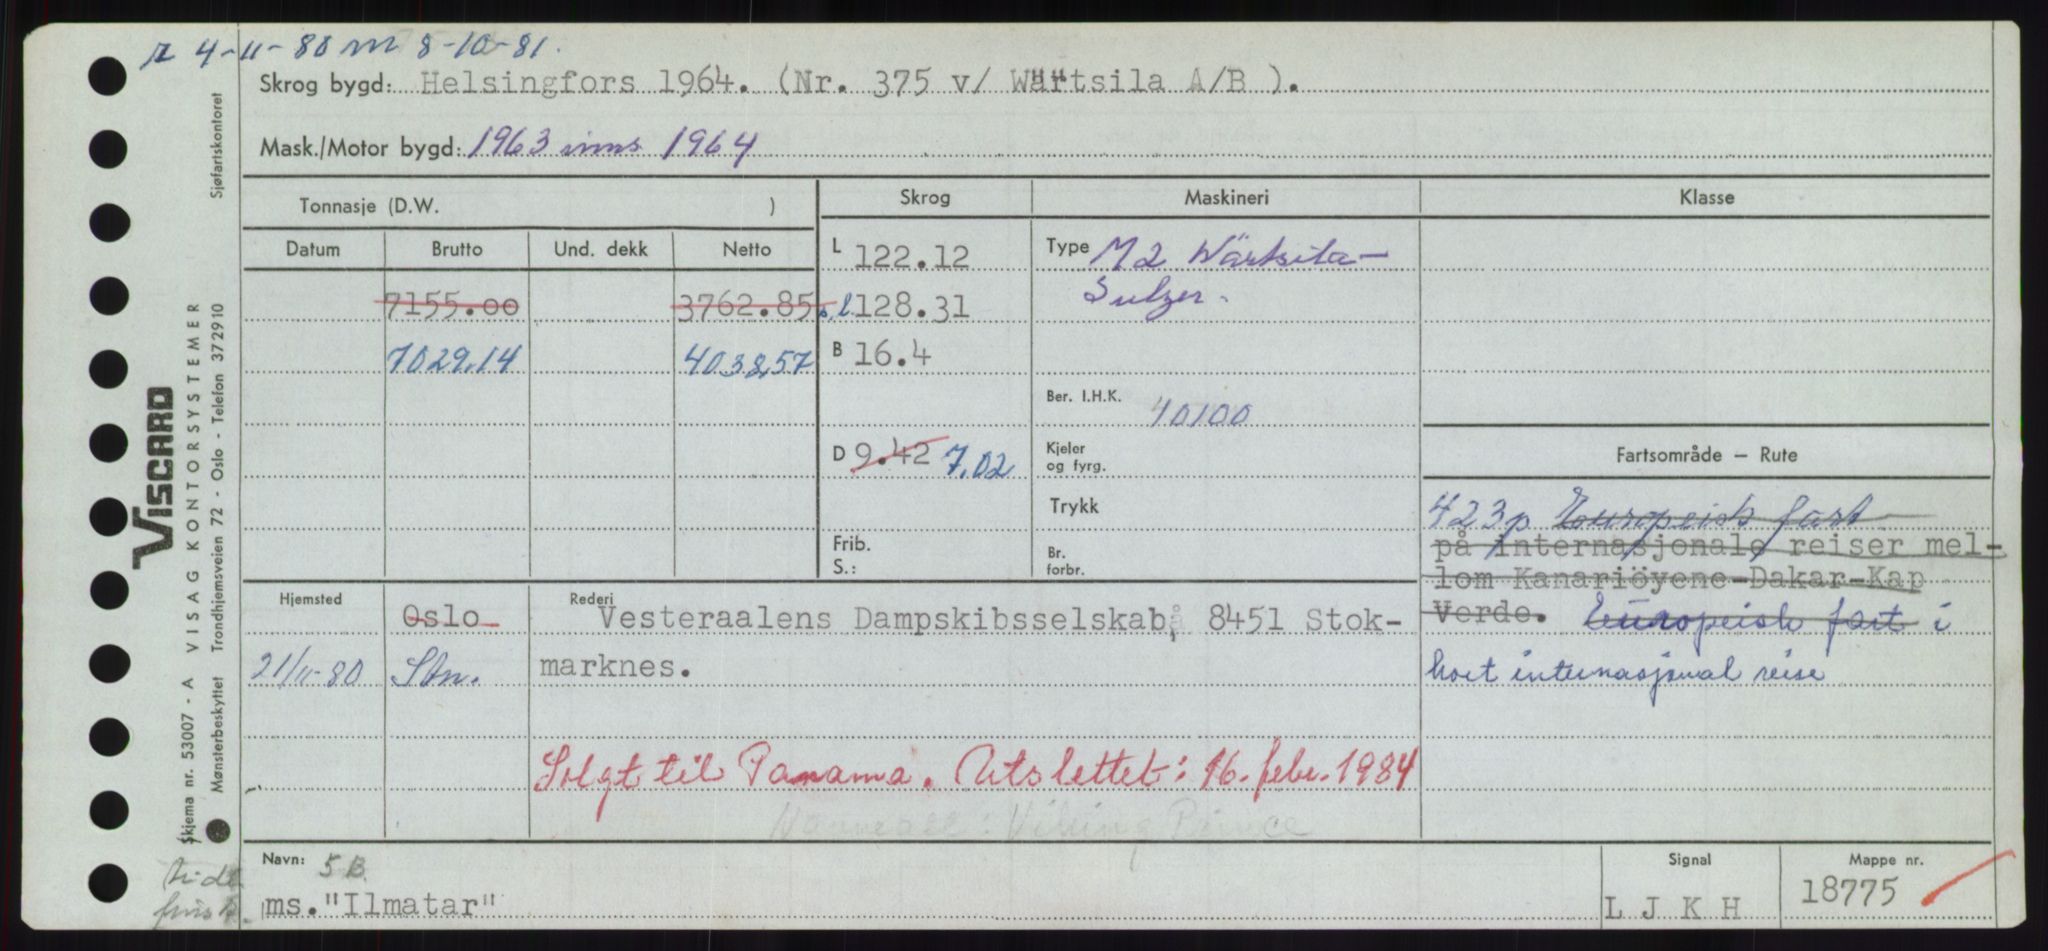 r 4-11-80 m 8-10-81.
Skrog bygd: Helsingfors 1964. (Nr. 375 v/ Wärtsila A/B ).
Mask./Motor bygd: 1963 inns 1964
Tonnasje (D.W. )
Skrog
Maskineri
Klasse
Datum
Brutto
Und. dekk
Netto
L 122.12
Type M2 Wärtsila-
Sulzer.
7155.00
3762.85
l. 128.31
7029,14
4038,57
B 16.4
Ber. I.H.K. 10100
D 9.42 7,02
Kjeler
og fyrg.
Trykk
Frib.
S.:
Br.
forbr.
Fartsområde – Rute
423p Europeisk fart
på internasjonale reiser mel-
lom Kanariöyene-Dakar-Kap
Verde. Europeisk fart i
kort internasjonal reise
Hjemsted
Oslo
21/11-80 Skn.
Rederi
Vesteraalens Dampskibsselskab, 8451 Stok-
marknes.
Solgt til Panama. Utslettet: 16. febr. 1984
Viking Prince
Navn: 5 B.
ms."Ilmatar"
Signal
L J K H
Mappe nr.
18775
VISCARD
Skjema nr. 53007 - A VISAG KONTORSYSTEMER
Mønsterbeskyttet Trondhjemsveien 72 - Oslo - Telefon 372910
Sjøfartskontoret